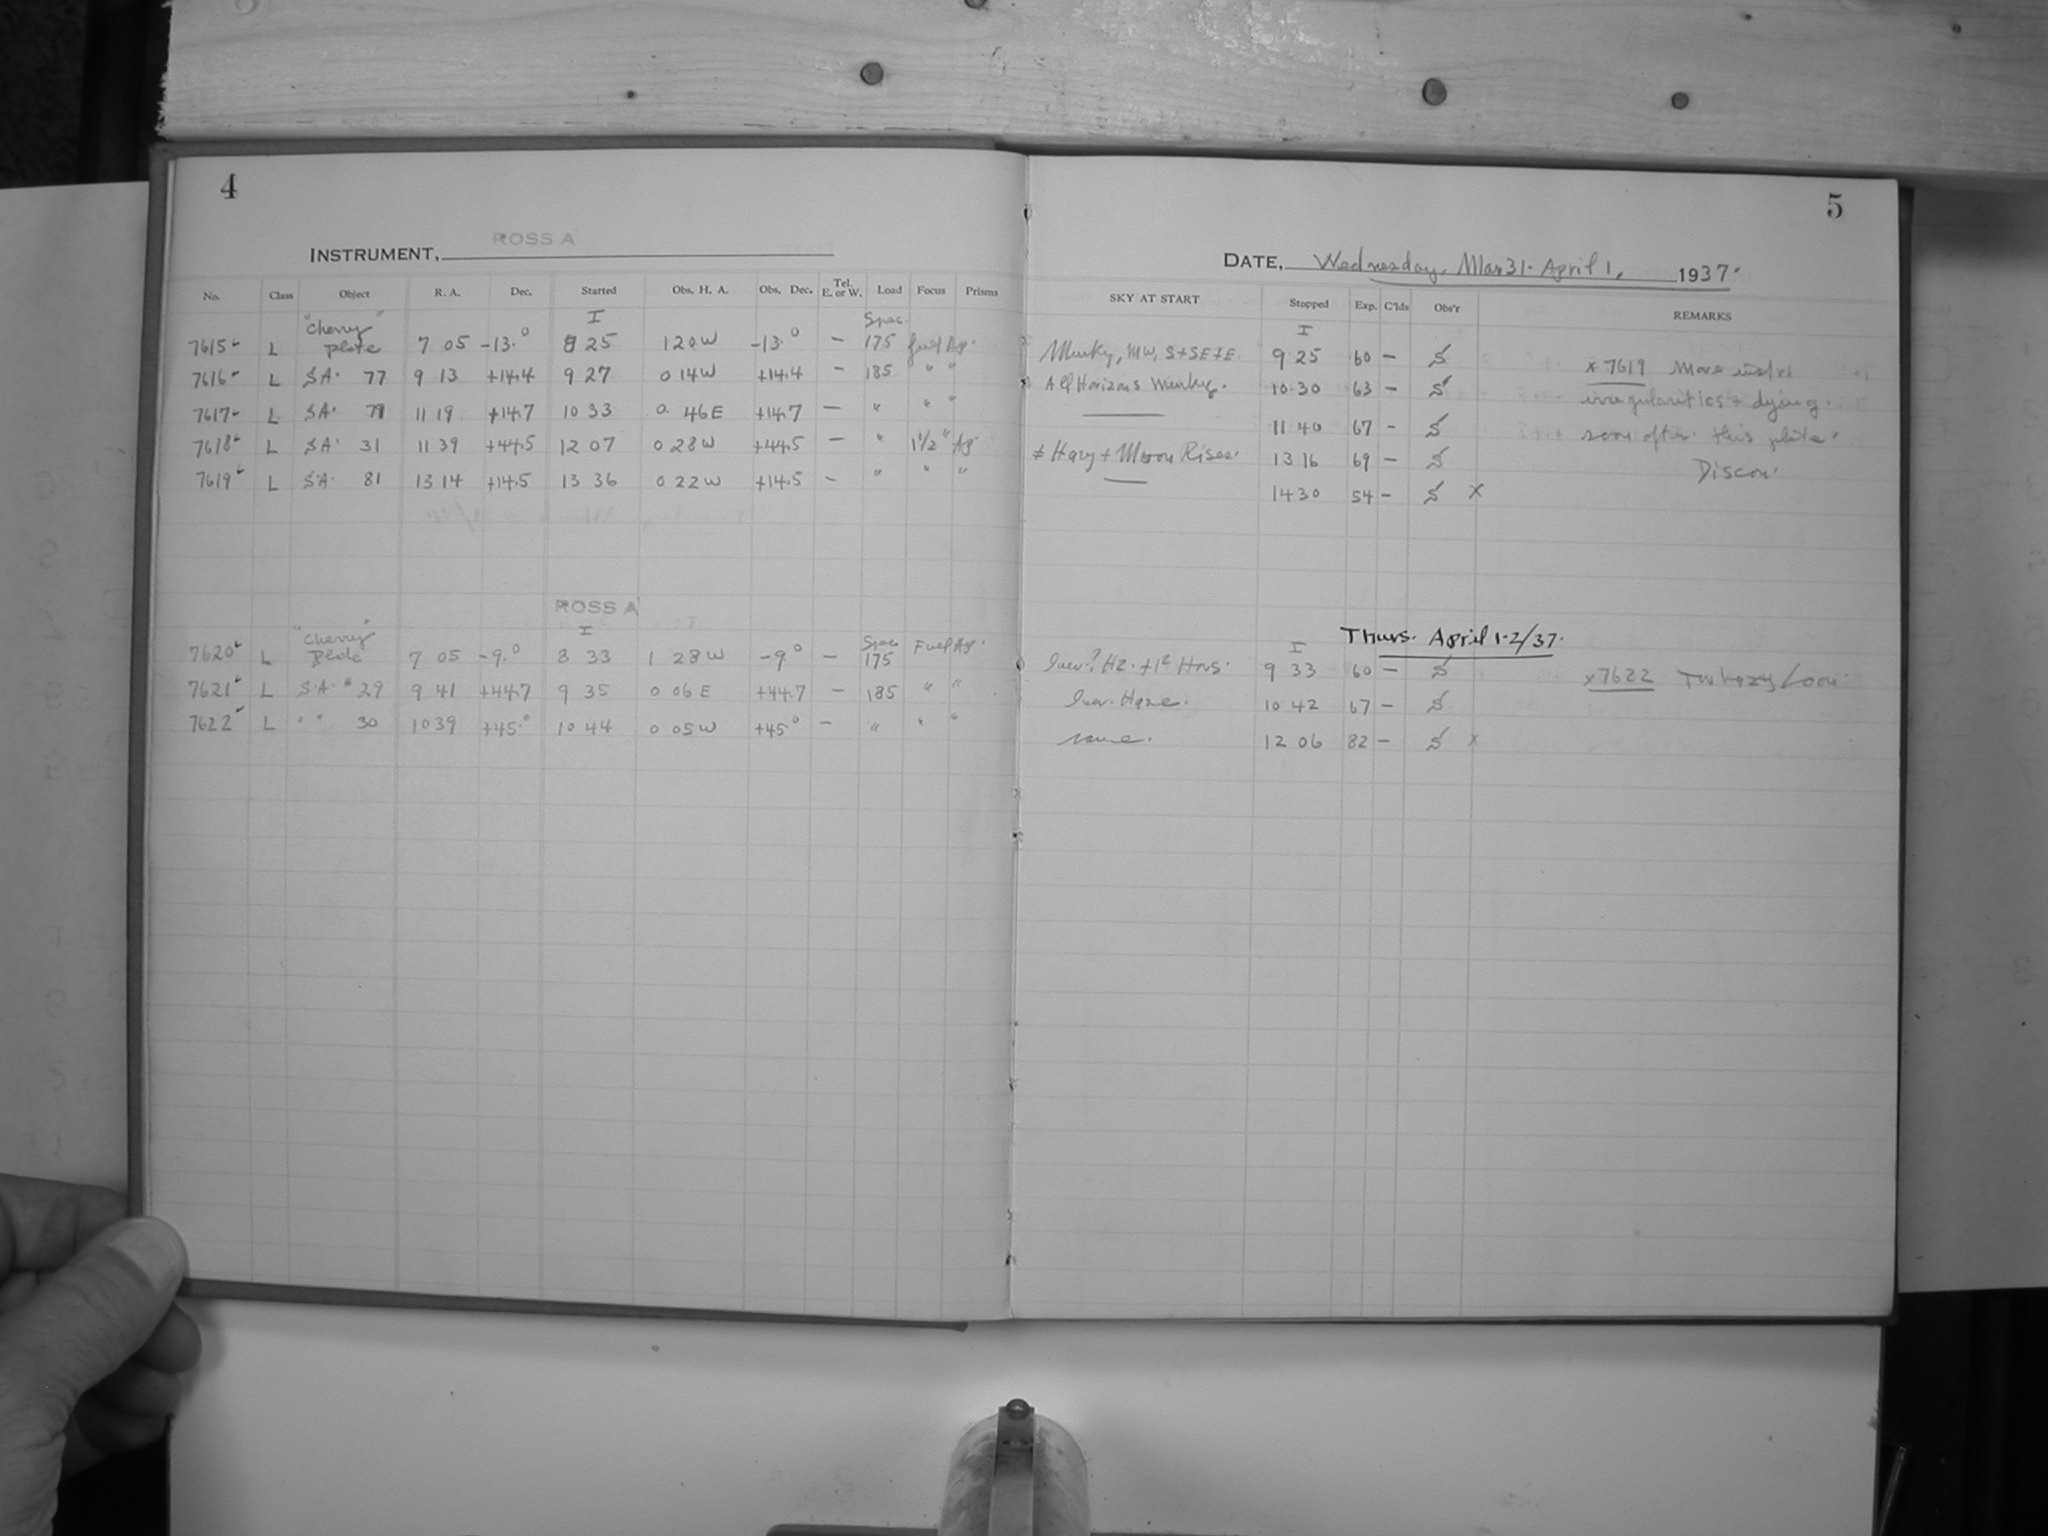 4
ROSS A
INSTRUMENT,
No. Class Object R. A. Dec. Started Obs. H. A. Obs. Dec. Tel. E. or W. Load Focus Prisms
"Cherry" I Spec.
7615 L plate 7 05 -13.° 8 25 1 20 W -13.° — 175 full Ap.
7616 L S.A. 77 9 13 +14.4 9 27 0 14 W +14.4 — 185 " "
7617 L S.A. 11 19 +14.7 10 33 0 46 E +14.7 — " " "
7618 L S.A. 31 11 39 +44.5 12 07 0 28 W +44.5 — " 1 1/2" Ap.
7619 L S.A. 81 13 14 +14.5 13 36 0 22 W +14.5 — " " "
ROSS A
"Cherry" I Spec Full Ap.
7620 L Plate 7 05 -9.° 8 33 1 28 W -9.° — 175
7621 L S.A. # 29 9 41 +44.7 9 35 0 06 E +44.7 — 185 " "
7622 L " " 30 10 39 +45.° 10 44 0 05 W +45° — " " "
5
DATE, Wednesday, Mar 31 - April 1, 1937.
SKY AT START Stopped Exp. C'lds Obs'r REMARKS
I
Murky, MW, S+SE+E. 9 25 60 — S x 7619 More
All Horizons Murky. 10 30 63 — S irregularities + dying
11 40 67 — S soon after this plate.
Hazy + Moon Rises. 13 16 69 — S Discon.
14 30 54 — S x
Thurs. April 1-2/37.
I
Hz. + 9 33 60 — S x 7622 Too hazy
Haze. 10 42 67 — S
same. 12 06 82 — S x